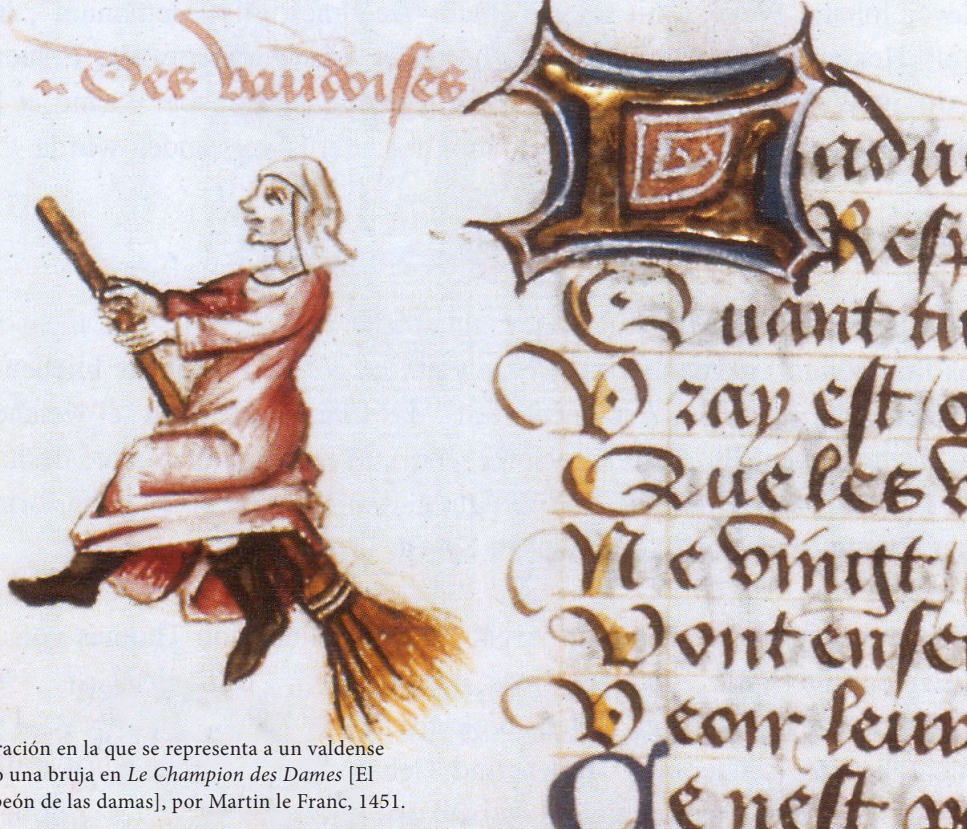 Des vaudoises
adu
Resp
Quant tu
Vray est
Que les v
Ne vingt
Vont ense
Veoir leur
Ce nest p
ración en la que se representa a un valdense
o una bruja en Le Champion des Dames [El
peón de las damas], por Martin le Franc, 1451.